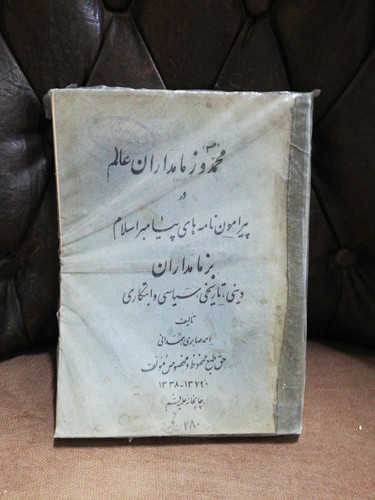 محمد (ص) و زمامداران عالم
در
پیرامون نامه های پیامبر اسلام
بزمامداران
دینی، تاریخی، سیاسی و ابتکاری
تألیف
احمد صابری همدانی
حق طبع محفوظ و مخصوص مؤلف
۱۳۷۹-۱۳۳۸
چاپخانه علمیه قم
۲۸۰